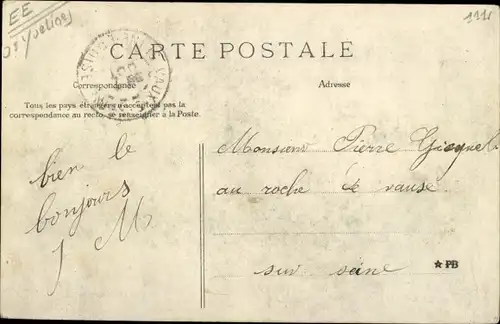 EE
1118
CARTE POSTALE
Correspondance
Adresse
Tous les pays étrangers n'acceptent pas la
correspondance au recto, se renseigner à la Poste.
bien le
bonjours
J M
Monsieur Pierre
au roche de
sur seine
★ PB